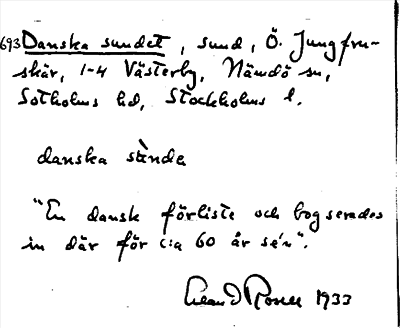 693 Danska sundet, sund, Ö. Jungfru-
skär, 1-4 Västerby, Nämdö sn,
Sotholms hd, Stockholms l.
danska sùnde
"En dansk förliste och bogserades
in där för c:a 60 år se'n".
Rosell 1933